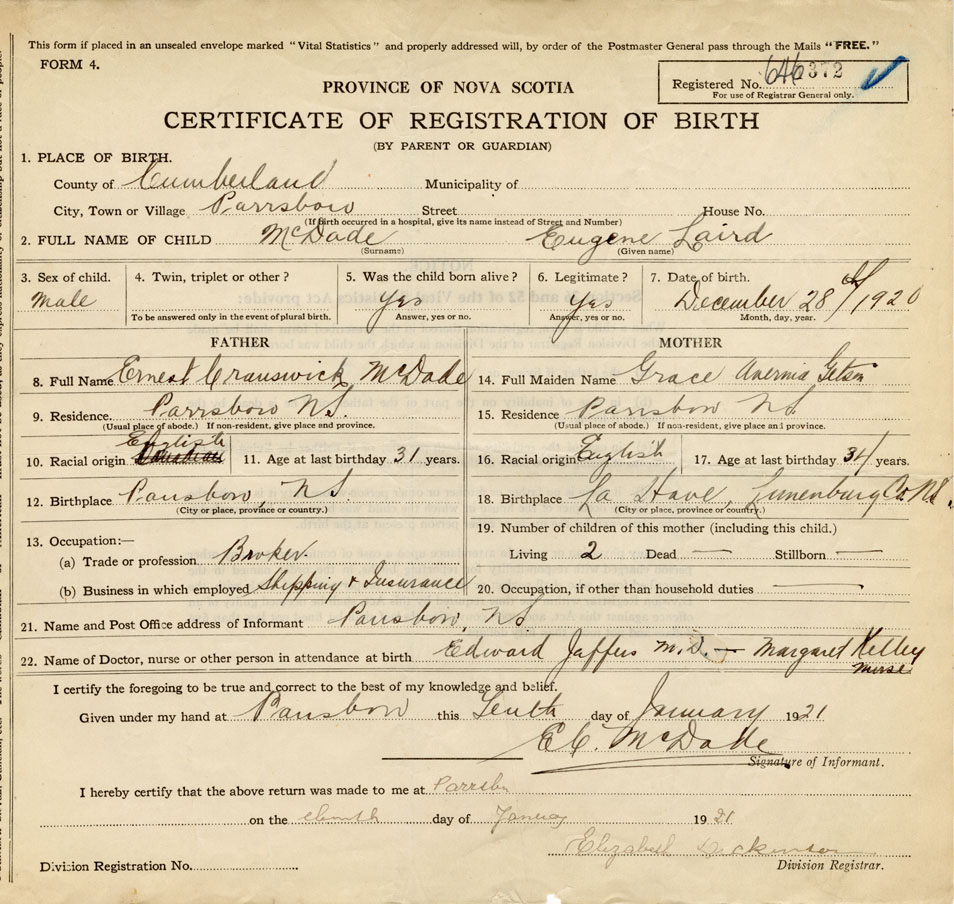 This form if placed in an unsealed envelope marked "Vital Statistics" and properly addressed will, by order of the Postmaster General pass through the Mails "FREE."
FORM 4.
Registered No. 646372
For use of Registrar General only.
PROVINCE OF NOVA SCOTIA
CERTIFICATE OF REGISTRATION OF BIRTH
(BY PARENT OR GUARDIAN)
1. PLACE OF BIRTH.
County of Cumberland Municipality of
City, Town or Village Parrsboro Street House No.
(If birth occurred in a hospital, give its name instead of Street and Number)
2. FULL NAME OF CHILD McDade Eugene Laird
(Surname) (Given name)
3. Sex of child. 4. Twin, triplet or other? 5. Was the child born alive? 6. Legitimate? 7. Date of birth.
Male Yes Yes December 28 1920
To be answered only in the event of plural birth. Answer, yes or no. Answer, yes or no. Month, day, year.
FATHER MOTHER
8. Full Name Ernest Cranswick McDade 14. Full Maiden Name Grace
9. Residence. Parrsboro N.S. 15. Residence Parrsboro N.S.
(Usual place of abode.) If non-resident, give place and province. (Usual place of abode.) If non-resident, give place and province.
10. Racial origin English 11. Age at last birthday 31 years. 16. Racial origin English 17. Age at last birthday 34 years.
12. Birthplace Parrsboro, N.S. 18. Birthplace La Have, Lunenburg Co N.S.
(City or place, province or country.) (City or place, province or country.)
19. Number of children of this mother (including this child.)
13. Occupation:—
(a) Trade or profession Broker. Living 2 Dead — Stillborn —
(b) Business in which employed Shipping & Insurance 20. Occupation, if other than household duties —
21. Name and Post Office address of Informant Parrsboro, N.S.
22. Name of Doctor, nurse or other person in attendance at birth Edward Jaffers M.D. — Margaret Kelley
Nurse
I certify the foregoing to be true and correct to the best of my knowledge and belief.
Given under my hand at Parrsboro this Tenth day of January 1921
E C. McDade
Signature of Informant.
I hereby certify that the above return was made to me at Parrsboro
on the day of January 1921
Elizabeth Dickinson
Division Registration No. Division Registrar.